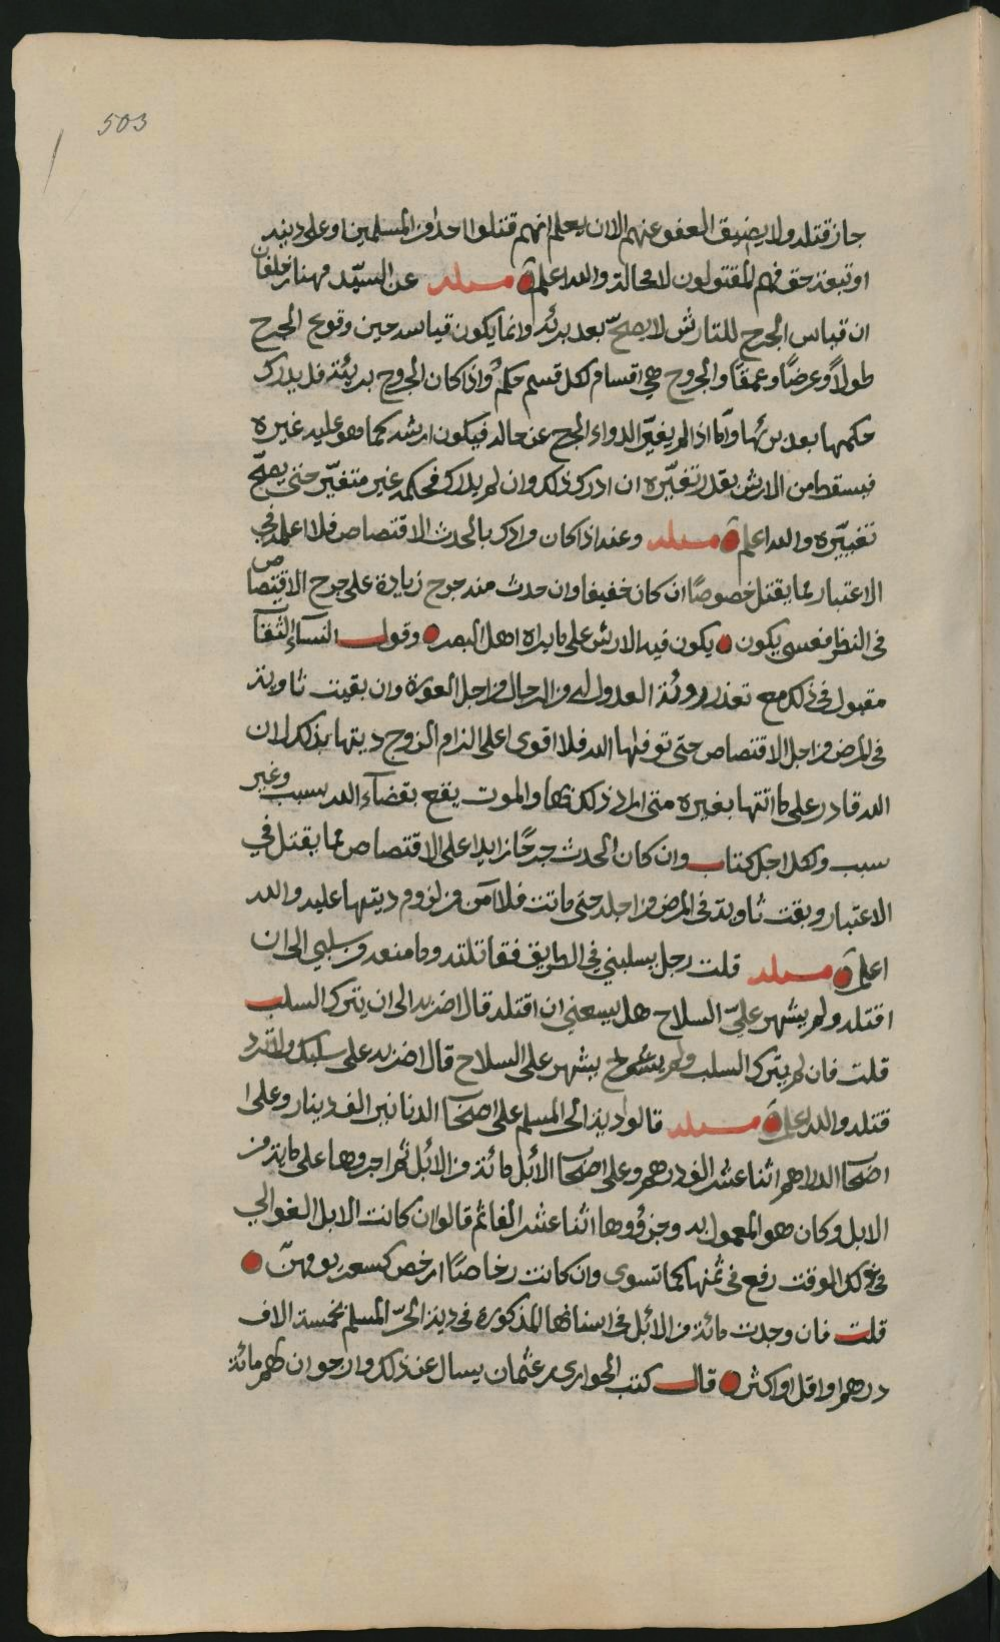 503
جاز قتله ولا يضيق العفو عنهم الا ان يعلم انهم قتلوا احدا من المسلمين او على دينه
او تبعة حق فهم المقتولون لا محالة والله اعلم مسئلة عن السيد مهنا بن خلفان
ان قياس الجرح للتارش لا يصح بعد برئه وانما يكون قياسه حين وقوع الجرح
طولاً وعرضًا وعمقًا والجروح هي اقسام لكل قسم حكم واذا كان الجروح بريئة فلا يدرك
حكمها بعد برئها واما اذا لم يغير الدواء الجرح عن حاله فيكون ارشه كما هو عليه غيره
فيسقط من الارش بقدر تغيره ان ادرك ذلك وان لم يدرك فحكمه غير متغير حتى يصح
تغييره والله اعلم مسئلة وعنه اذا كان وادرك بالحدث الاقتصاص فلا اعلمه في
الاعتبار مما يقتل خصوصًا ان كان خفيفا وان حدث منه جرح زيادة على جرح الاقتصاص
في النظر فعسى يكون يكون فيه الارش على ما يراه اهل البصر وقول النساء الثقات
مقبول في ذلك مع تعذر روئة العدول له من الرجال من اجل العورة وان بقيت ثاوية
في المرض من اجل الاقتصاص حتى توفاها الله فلا اقوى على الزام الزوج ديتها بذلك لان
الله قادر على اماتتها بغيره متى اراد ذلك بها والموت يقع بقضاء الله بسبب وغير
سبب ولكل اجل كتاب وان كان الحدث جرحًا زايدا على الاقتصاص مما يقتل في
الاعتبار وبقت ثاوية في المرض من اجله حتى ماتت فلا آمن من لزوم ديتها عليه والله
اعلم مسئلة قلت رجل يسلبني في الطريق فقاتلته وما منعه من سلبي الى ان
اقتله ولم يشهر عليّ السلاح هل يسعني ان اقتله قال اضربه الى ان يترك السلب
قلت فان لم يترك السلب ولم يشهر علي السلاح قال اضربه على سلبك ولا ترد
قتله والله اعلم مسئلة قالوا دية الحر المسلم على اصحاب الدنانير الف دينار وعلى ا
اصحاب الدراهم اثنا عشر الف درهم وعلى اصحاب الابل مائة من الابل ثم اجروها على ماية من
الابل وكان هو المعمول به وجزؤوها اثنا عشر الفا ثم قالوا ان كانت الابل الغوالي
في ذلك الوقت رفع في ثمنها كما تسوى وان كانت رخاصًا ارخص كسعر يومهن
قلت فان وجدت مائة من الابل في اسنانها المذكورة في دية الحر المسلم بخمسة الاف
درهم او اقل او اكثر قال كتب الحواري بن عثمان يسال عن ذلك وارجو ان لهم مائة